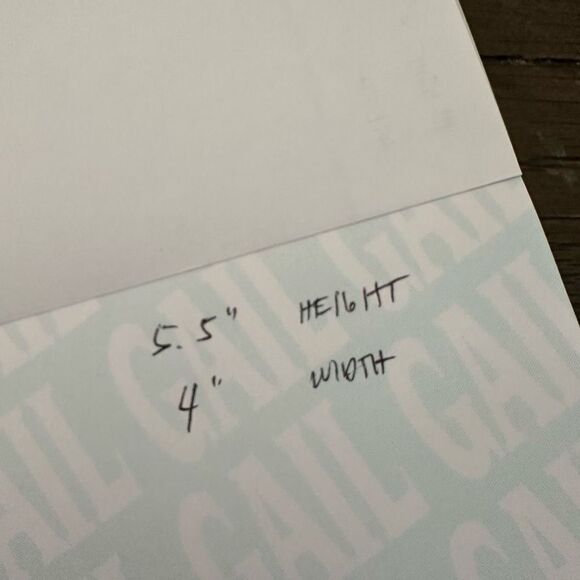 GAIL GAIL
5.5" HEIGHT
4" WIDTH
GAIL GAIL GAIL
GAIL GAIL